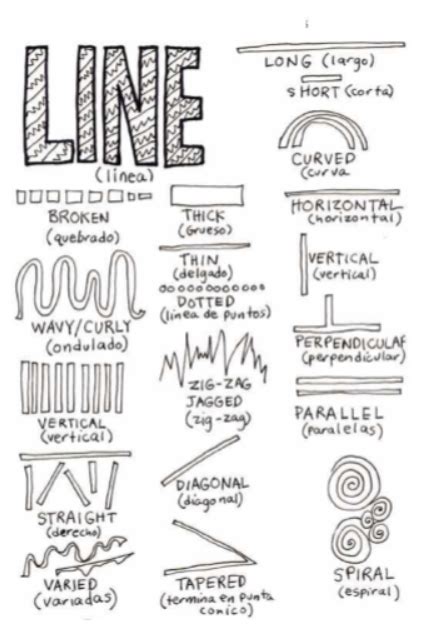 LINE
(linea)
BROKEN
(quebrado)
WAVY/CURLY
(ondulado)
VERTICAL
(vertical)
STRAIGHT
(derecho)
VARIED
(variadas)
THICK
(Grueso)
THIN
(delgado)
DOTTED
(línea de puntos)
ZIG-ZAG
JAGGED
(zig-zag)
DIAGONAL
(diagonal)
TAPERED
(termina en punta
conico)
LONG (largo)
SHORT (corta)
CURVED
(curva
HORIZONTAL
(horizontal)
VERTICAL
(vertical)
PERPENDICULAR
(perpendicular)
PARALLEL
(paralelas)
SPIRAL
(espiral)